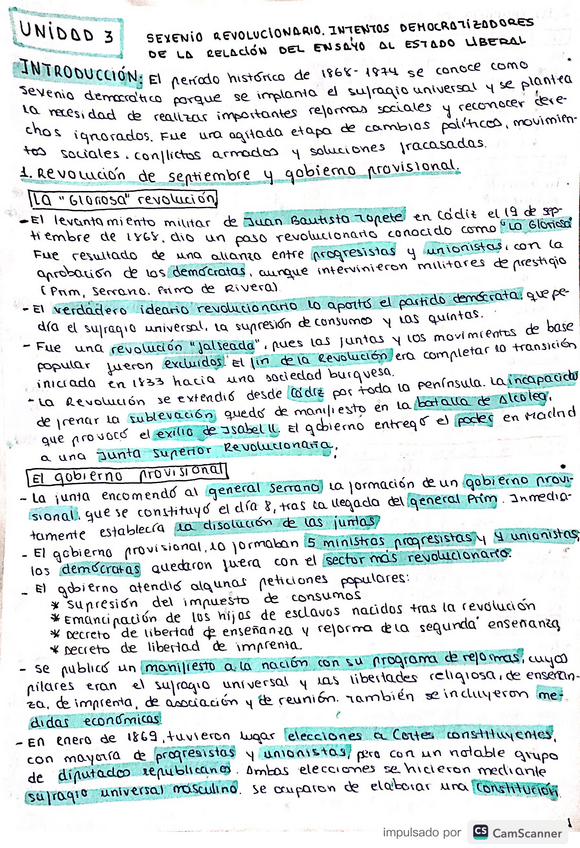 UNIDAD 3
SEXENIO REVOLUCIONARIO. INTENTOS DEMOCRATIZADORES
DE LA RELACIÓN DEL ENSAYO AL ESTADO LIBERAL
INTRODUCCIÓN: El período histórico de 1868-1874 se conoce como
sexenio democrático porque se implanta el sufragio universal y se plantea
la necesidad de realizar importantes reformas sociales y reconocer dere-
chos ignorados. Fue una agitada etapa de cambios políticos, movimien-
tos sociales, conflictos armados y soluciones fracasadas.
1. Revolución de septiembre y gobierno provisional.
La "Gloriosa" revolución
- El levantamiento militar de Juan Bautista Topete en Cádiz el 19 de sep-
tiembre de 1868, dio un paso revolucionario conocido como "La Gloriosa"
Fue resultado de una alianza entre progresistas y unionistas, con la
aprobación de los demócratas, aunque intervinieron militares de prestigio
(Prim, Serrano, Primo de Rivera)
- El verdadero ideario revolucionario lo aportó el partido demócrata, que pe-
día el sufragio universal, la supresión de consumos y las quintas.
- Fue una revolución "falseada", pues las juntas y los movimientos de base
popular fueron excluidos. El fin de la Revolución era completar la transición
iniciada en 1833 hacia una sociedad burguesa.
- La Revolución se extendió desde Cádiz por toda la península. La incapacidad
de frenar la sublevación quedó de manifiesto en la batalla de Alcolea,
que provocó el exilio de Isabel II. El gobierno entregó el poder en Madrid
a una Junta Superior Revolucionaria;
El gobierno provisional
- La junta encomendó al general Serrano la formación de un gobierno provi-
sional, que se constituyó el día 8, tras la llegada del general Prim. Inmedia-
tamente establecía la disolución de las juntas
- El gobierno provisional, lo formaban 5 ministros progresistas y 4 unionistas,
los demócratas quedaron fuera con el sector más revolucionario.
- El gobierno atendió algunas peticiones populares:
* Supresión del impuesto de consumos
* Emancipación de los hijos de esclavos nacidos tras la revolución
* Decreto de libertad de enseñanza y reforma de la segunda enseñanza
* Decreto de libertad de imprenta.
- Se publicó un manifiesto a la nación con su programa de reformas, cuyos
pilares eran el sufragio universal y las libertades religiosa, de enseñan-
za, de imprenta, de asociación y de reunión. También se incluyeron me-
didas económicas
- En enero de 1869, tuvieron lugar elecciones a Cortes constituyentes,
con mayoría de progresistas y unionistas, pero con un notable grupo
de diputados republicanos. Ambas elecciones se hicieron mediante
sufragio universal masculino. Se ocuparon de elaborar una constitución.
1
impulsado por CS CamScanner